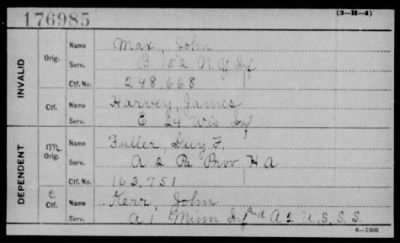 176985
(3-H-4)
INVALID
Orig.
Name Max, John
Serv. B 152 N.Y. Inf
Ctf. No. 248,668
Ctf.
Name Harvey, James
Serv. E 24 Wis Inf
DEPENDENT
M
Orig.
Name Fuller, Guy F.
Serv. A 2 Pa Prov. H A
Ctf. No. 163,751
C
Ctf.
Name Kerr, John
Serv. A 1 Minn Inf A 2 U.S.S.S.